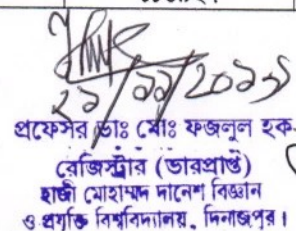 ২১/১১/2019
প্রফেসর ডাঃ মোঃ ফজলুল হক
রেজিস্ট্রার (ভারপ্রাপ্ত)
হাজী মোহাম্মদ দানেশ বিজ্ঞান
ও প্রযুক্তি বিশ্ববিদ্যালয়, দিনাজপুর।